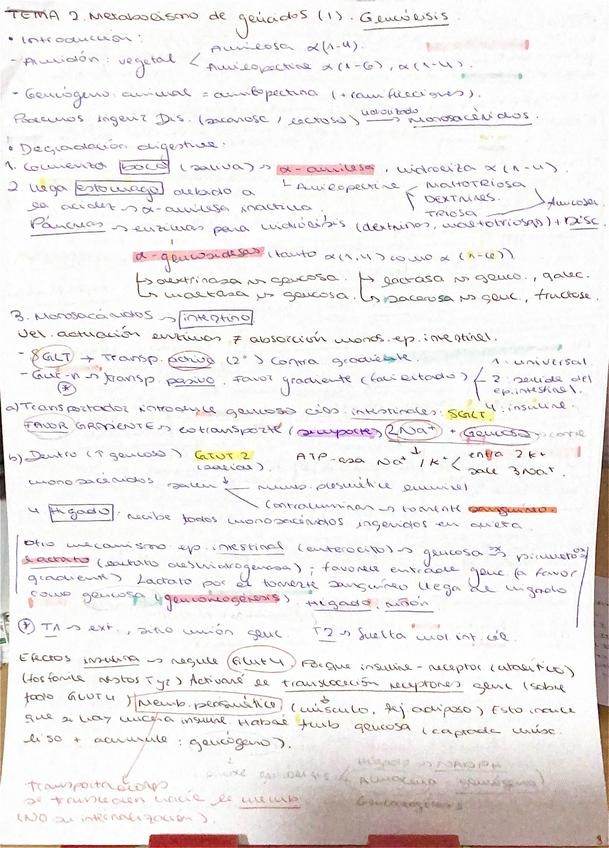 TEMA 2. Metabolismo de glúcidos (1). Glucólisis
• Introducción:
- Almidón: vegetal < Amilosa α(1-4).
Amilopectina α(1-6), α(1-4).
- Glucógeno: animal = amilopectina (+ ramificaciones).
Podemos ingerir Dis. (sacarosa, lactosa) → monosacáridos.
• Degradación digestiva:
1. Comienza boca (saliva) → α-amilasa, hidroliza α(1-4).
2. llega estomago debido a
└ Amilopectina MALTOTRIOSA
DEXTRINAS
TRIOSA
la acidez → α-amilasa inactiva.
Páncreas → enzimas para hidrólisis (dextrinas, maltotriosas) + Disc.
α-glucosidasas (tanto α(1,4) como α(1-6))
↳ dextrinasa → glucosa. ↳ lactasa → gluco., galac.
↳ maltasa → glucosa. ↳ sacarosa → gluc, fructosa.
3. Monosacáridos → intestino
Vel. actuación enzimas ≠ absorción monos. ep. intestinal.
- SGLT → Transp. activo (2º) contra gradiente.
- Glut-n → transp. pasivo. Favor gradiente (facilitado)
1. universal
2. salida del ep. intestinal.
4. insulina.
a) Transportador introduce glucosa cels. intestinales: SGLT.
FAVOR GRADIENTE → cotransporte (simporte) 2Na⁺ + Glucosa
b) Dentro (↑ glucosa) GLUT 2 ATP-asa Na⁺/K⁺ < entra 2K⁺
sale 3Na⁺.
monosacáridos salen
Contraluminar → torrente sanguíneo.
4 Hígado: recibe todos monosacáridos ingeridos en dieta.
Otro mecanismo ep. intestinal (enterocito) → glucosa → piruvato
Lactato (lactato deshidrogenasa); favorece entrada gluc (a favor
gradiente) Lactato por el torrente sanguíneo llega de hígado
como glucosa (gluconeogénesis) Hígado, riñón
T1 → ext., sitio unión gluc. T2 → Suelta mol int. cél.
Efectos insulina → regula Glut 4. Porque insulina - receptor (catalítico)
(fosforila restos Tyr) Activará la translocación receptores gluc (sobre
todo GLUT 4) Memb. plasmática (músculo, tej adiposo) Esto indica
que si hay mucha insulina habrá tamb glucosa (captada músc.
liso + acumula: glucógeno).
Transportadores
se translocan hacia la memb
(NO se internalización).